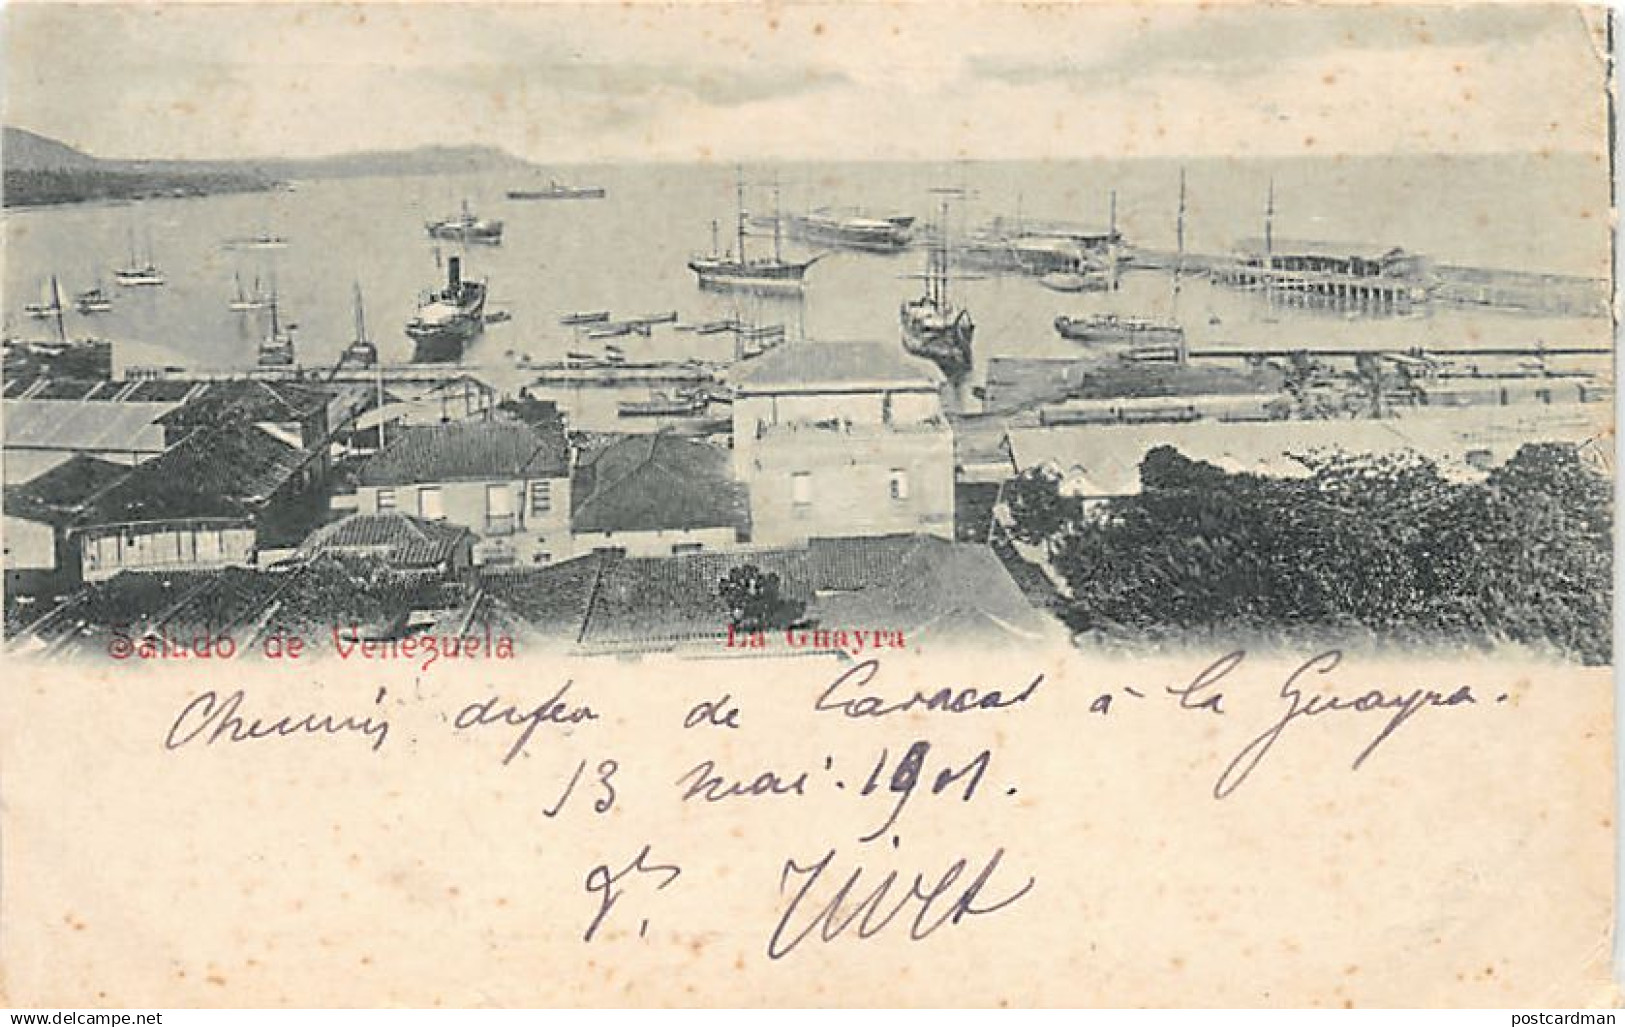 Saludo de Venezuela
La Guayra
Chemin de fer de Caracas à la Guayra.
13 mai. 1901.
www.delcampe.net
postcardman